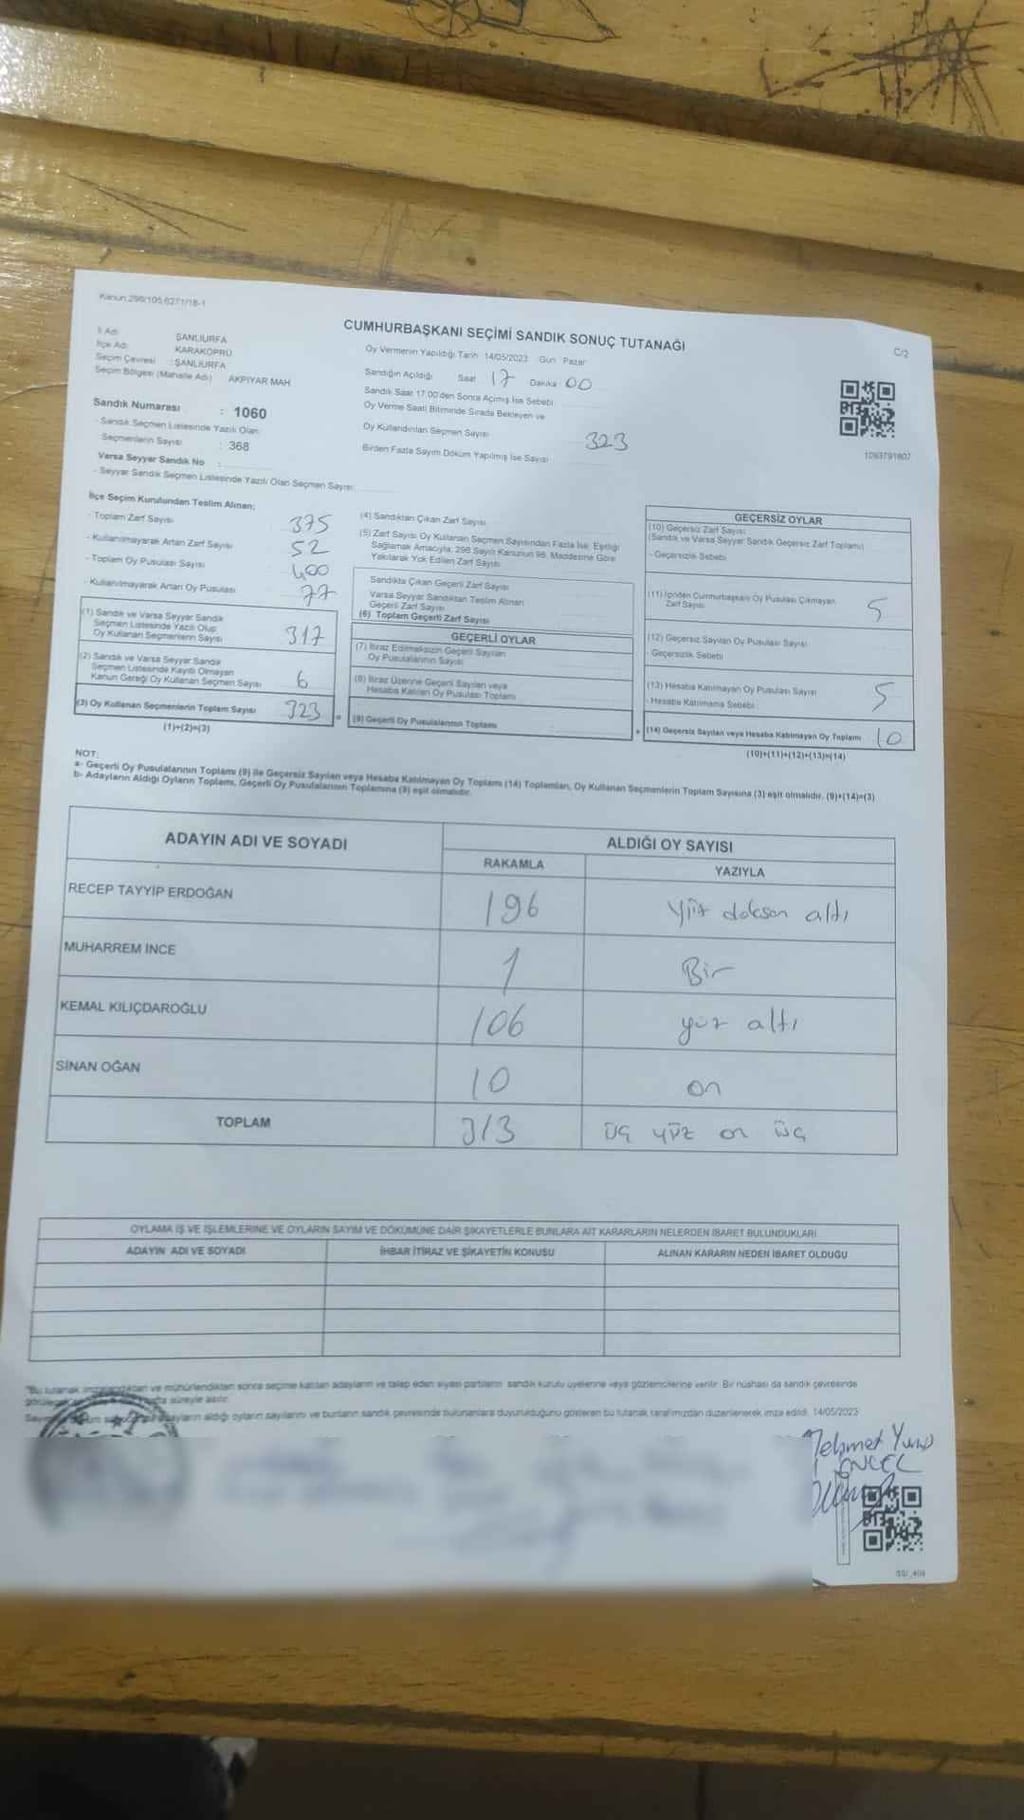 Kanun:298/105,6271/18-1
CUMHURBAŞKANI SEÇİMİ SANDIK SONUÇ TUTANAĞI
C/2
İl Adı ŞANLIURFA
İlçe Adı KARAKÖPRÜ
Seçim Çevresi : ŞANLIURFA
Seçim Bölgesi (Mahalle Adı) AKPIYAR MAH
Oy Vermenin Yapıldığı Tarih 14/05/2023 Gün Pazar
Sandığın Açıldığı Saat 17 Dakika 00
Sandık Saat 17.00'den Sonra Açılmış İse Sebebi
Oy Verme Saati Bitiminde Sırada Bekleyen ve
Oy Kullandırılan Seçmen Sayısı 323
Birden Fazla Sayım Döküm Yapılmış İse Sayısı
1093791807
Sandık Numarası : 1060
- Sandık Seçmen Listesinde Yazılı Olan
Seçmenlerin Sayısı : 368
Varsa Seyyar Sandık No :
- Seyyar Sandık Seçmen Listesinde Yazılı Olan Seçmen Sayısı
İlçe Seçim Kurulundan Teslim Alınan;
- Toplam Zarf Sayısı 375
- Kullanılmayarak Artan Zarf Sayısı 52
- Toplam Oy Pusulası Sayısı 400
- Kullanılmayarak Artan Oy Pusulası 77
(1) Sandık ve Varsa Seyyar Sandık
Seçmen Listesinde Yazılı Olup
Oy Kullanan Seçmenlerin Sayısı 317
(2) Sandık ve Varsa Seyyar Sandık
Seçmen Listesinde Kayıtlı Olmayan
Kanun Gereği Oy Kullanan Seçmen Sayısı 6
(3) Oy Kullanan Seçmenlerin Toplam Sayısı 323
(1)+(2)=(3)
(4) Sandıktan Çıkan Zarf Sayısı
(5) Zarf Sayısı Oy Kullanan Seçmen Sayısından Fazla İse, Eşitliği
Sağlamak Amacıyla, 298 Sayılı Kanunun 98. Maddesine Göre
Yakılarak Yok Edilen Zarf Sayısı
Sandıkta Çıkan Geçerli Zarf Sayısı
Varsa Seyyar Sandıktan Teslim Alınan
Geçerli Zarf Sayısı
(6) Toplam Geçerli Zarf Sayısı
GEÇERLİ OYLAR
(7) İtiraz Edilmeksizin Geçerli Sayılan
Oy Pusulalarının Sayısı
(8) İtiraz Üzerine Geçerli Sayılan veya
Hesaba Katılan Oy Pusulası Toplamı
= (9) Geçerli Oy Pusulalarının Toplamı
GEÇERSİZ OYLAR
(10) Geçersiz Zarf Sayısı
(Sandık ve Varsa Seyyar Sandık Geçersiz Zarf Toplamı)
- Geçersizlik Sebebi
(11) İçinden Cumhurbaşkanı Oy Pusulası Çıkmayan
Zarf Sayısı 5
(12) Geçersiz Sayılan Oy Pusulası Sayısı
- Geçersizlik Sebebi
(13) Hesaba Katılmayan Oy Pusulası Sayısı 5
- Hesaba Katılmama Sebebi
+ (14) Geçersiz Sayılan veya Hesaba Katılmayan Oy Toplamı 10
(10)+(11)+(12)+(13)=(14)
NOT:
a- Geçerli Oy Pusulalarının Toplamı (9) ile Geçersiz Sayılan veya Hesaba Katılmayan Oy Toplamı (14) Toplamları, Oy Kullanan Seçmenlerin Toplam Sayısına (3) eşit olmalıdır. (9)+(14)=(3)
b- Adayların Aldığı Oyların Toplamı, Geçerli Oy Pusulalarının Toplamına (9) eşit olmalıdır.
ADAYIN ADI VE SOYADI ALDIĞI OY SAYISI
RAKAMLA YAZIYLA
RECEP TAYYİP ERDOĞAN 196 yüz doksan altı
MUHARREM İNCE 1 Bir
KEMAL KILIÇDAROĞLU 106 yüz altı
SİNAN OĞAN 10 on
TOPLAM 313 üç yüz on üç
OYLAMA İŞ VE İŞLEMLERİNE VE OYLARIN SAYIM VE DÖKÜMÜNE DAİR ŞİKAYETLERLE BUNLARA AİT KARARLARIN NELERDEN İBARET BULUNDUKLARI
ADAYIN ADI VE SOYADI İHBAR İTİRAZ VE ŞİKAYETİN KONUSU ALINAN KARARIN NEDEN İBARET OLDUĞU
"Bu tutanak imzalandıktan ve mühürlendikten sonra seçime katılan adayların ve talep eden siyasi partilerin sandık kurulu üyelerine veya gözlemcilerine verilir. Bir nüshası da sandık çevresinde
süreyle asılır.
adayların aldığı oyların sayılarını ve bunların sandık çevresinde bulunanlara duyurulduğunu gösteren bu tutanak tarafımızdan düzenlenerek imza edildi. 14/05/2023
Mehmet Yunus